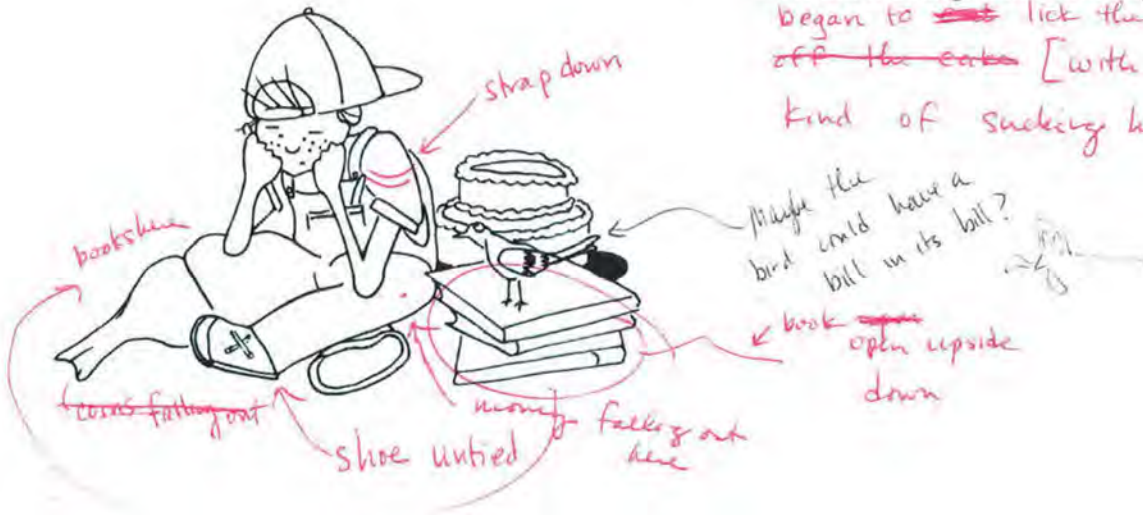 began to lick the
off the cake [with
kind of sucking
strap down
books here
Maybe the
bird could have a
bill in its bill?
book
open upside
down
coins falling out
shoe untied
money falling out
here